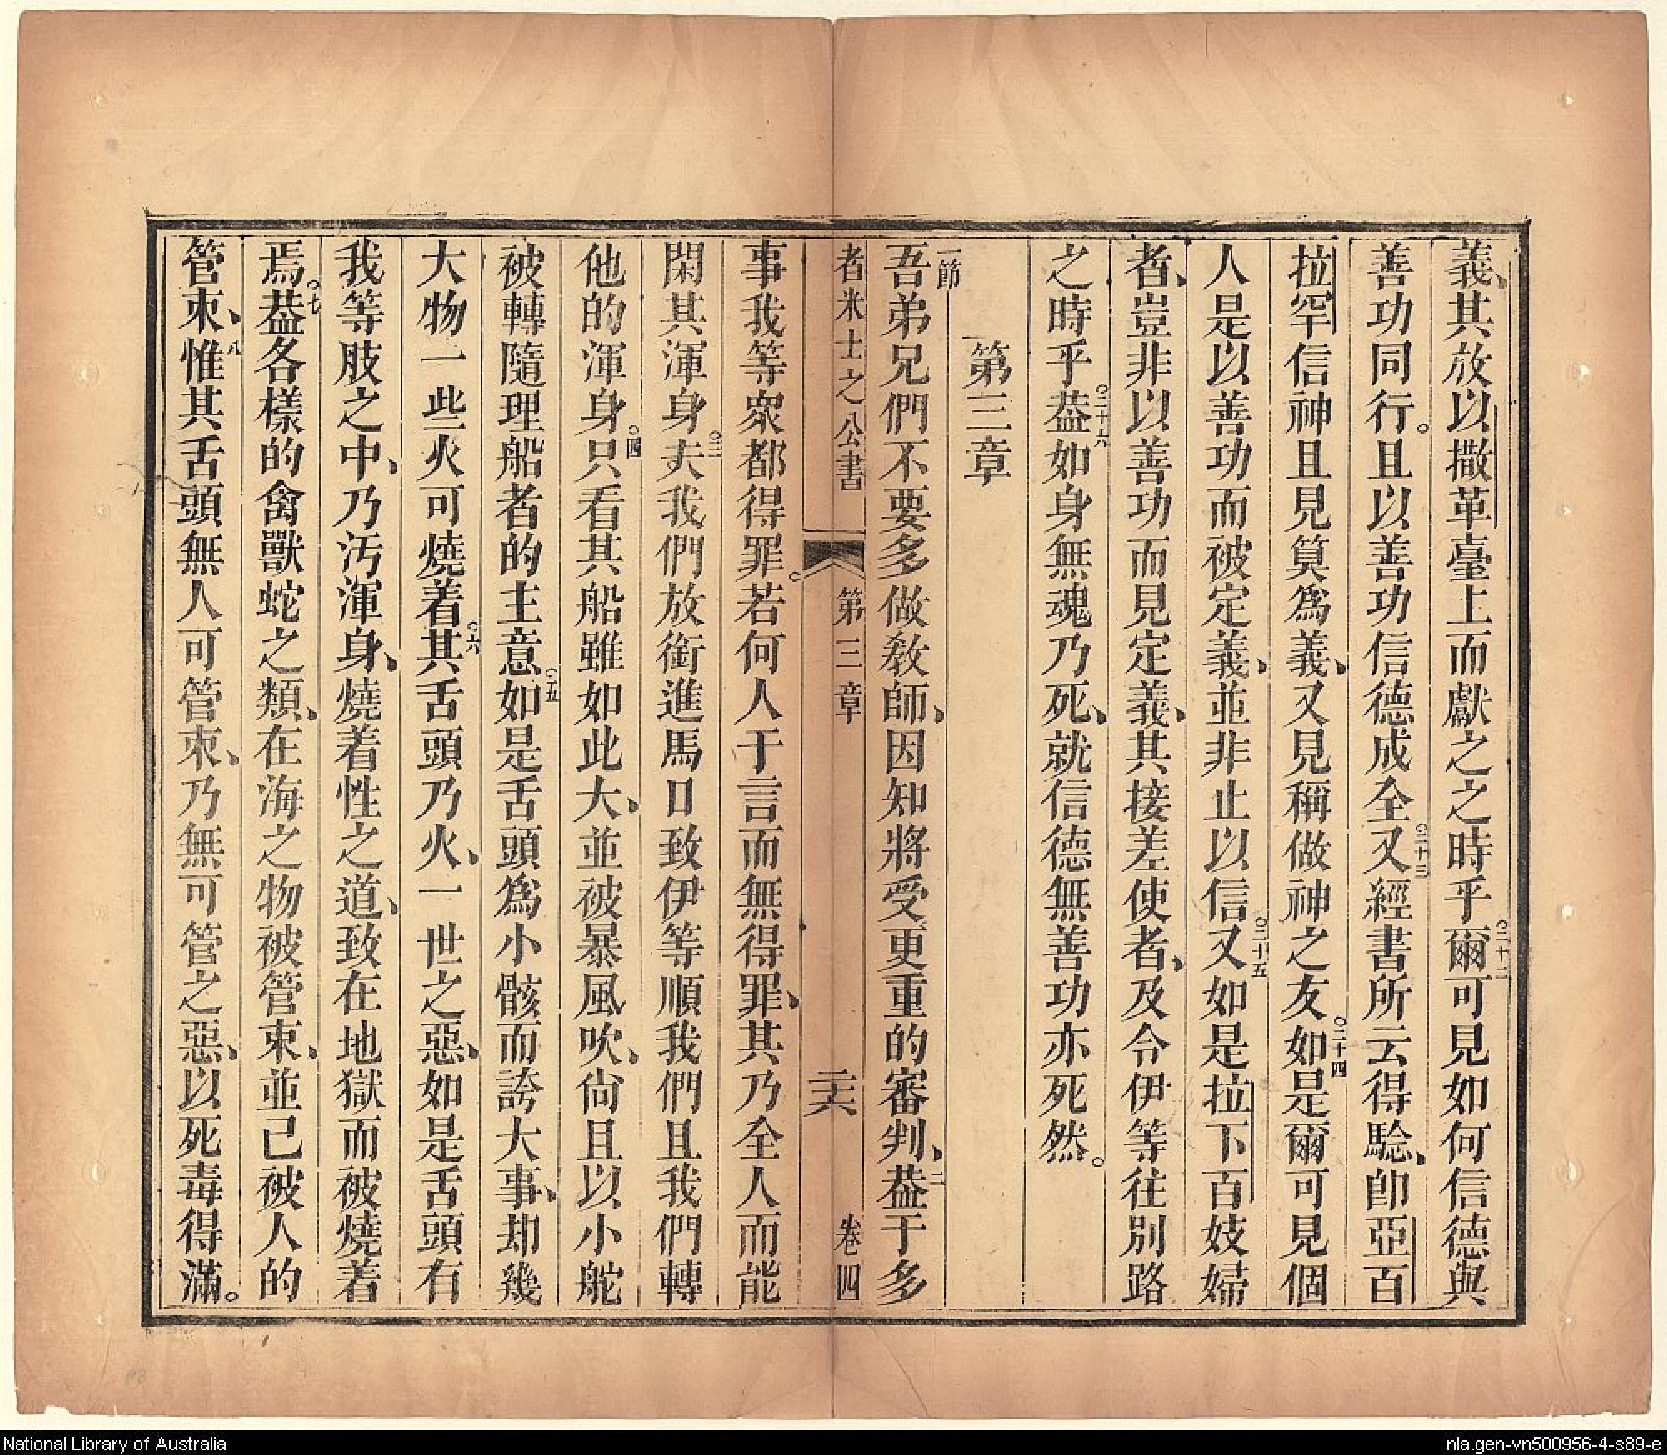 義、其放以撒革臺上而獻之之時乎。二十二爾可見如何信德與
善功同行。且以善功信德成全。二十三又經書所云得騐、卽亞百
拉罕信神且見筭為義、又見稱做神之友。二十四如是爾可見個
人是以善功而被定義、並非止以信。二十五又如是拉下百妓婦
者、豈非以善功而見定義、其接差使者、及令伊等往別路
之時乎。二十六葢如身無魂乃死、就信德無善功亦死然。
第三章
一節吾弟兄們不要多做教師、因知將受更重的審判、二葢于多
者米士之公書 第三章 二六 卷四
事我等眾都得罪。若何人于言而無得罪、其乃全人而能
閑其渾身。三夫我們放銜進馬口致伊等順我們且我們轉
他的渾身。四只看其船雖如此大、並被暴風吹、尙且以小舵
被轉隨理船者的主意。五如是舌頭為小骸而誇大事、却幾
大物一些火可燒着。六其舌頭乃火、一世之惡、如是舌頭有
我等肢之中、乃汚渾身、燒着性之道、致在地獄而被燒着
焉。七葢各樣的禽獸蛇之類、在海之物被管束、並已被人的
管束、八惟其舌頭無人可管束、乃無可管之惡、以死毒得滿。
National Library of Australia
nla.gen-vn500956-4-s89-e